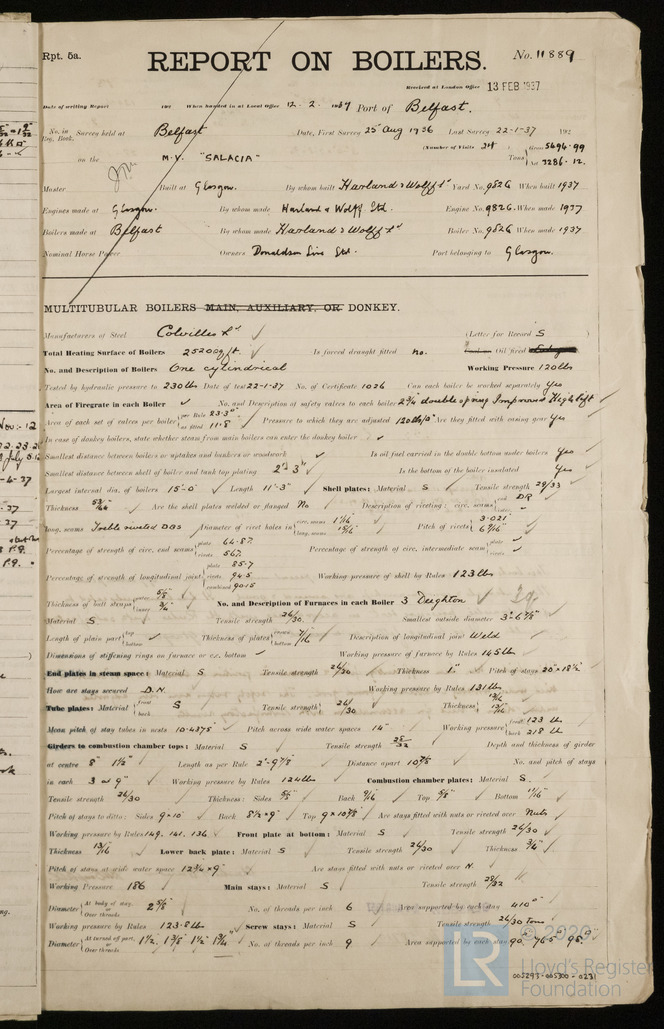 Rpt. 5a.
REPORT ON BOILERS.
No. 11889
Received at London Office 13 FEB 1937
Date of writing Report 192 When handed in at Local Office 12 - 2 - 1937 Port of Belfast.
No. in Reg. Book. Survey held at Belfast Date, First Survey 25 Aug 1936 Last Survey 22-1-37 192
on the M.V. "SALACIA" (Number of Visits ) Tons Gross 5494.99 Net 3286.12.
Master Built at Glasgow. By whom built Harland & Wolff Ld Yard No. 982G When built 1937
Engines made at Glasgow. By whom made Harland & Wolff Ltd. Engine No. 982G. When made 1937
Boilers made at Belfast By whom made Harland & Wolff Ld Boiler No. 982G When made 1937
Nominal Horse Power Owners Donaldson Line Ltd. Port belonging to Glasgow.
MULTITUBULAR BOILERS MAIN, AUXILIARY, OR DONKEY.
Manufacturers of Steel Colvilles Ld ✓ (Letter for Record S )
Total Heating Surface of Boilers 2520 sq ft. ✓ Is forced draught fitted no. Oil fired
No. and Description of Boilers One cylindrical Working Pressure 120 lbs
Tested by hydraulic pressure to 230 lbs Date of test 22-1-37 No. of Certificate 1026 Can each boiler be worked separately Yes
Area of Firegrate in each Boiler ✓ No. and Description of safety valves to each boiler 2¾ double spring Improved High lift
Area of each set of valves per boiler per Rule 23.3" as fitted 11.8 Pressure to which they are adjusted 120 lb/□" Are they fitted with easing gear Yes
In case of donkey boilers, state whether steam from main boilers can enter the donkey boiler ✓
Smallest distance between boilers or uptakes and bunkers or woodwork ✓ Is oil fuel carried in the double bottom under boilers Yes
Smallest distance between shell of boiler and tank top plating 2' 3" ✓ Is the bottom of the boiler insulated Yes
Largest internal dia. of boilers 15'-0" ✓ Length 11'-3" ✓ Shell plates: Material S Tensile strength 29/33
Thickness 53/64 Are the shell plates welded or flanged No Description of riveting: circ. seams end DR ✓
long. seams Treble riveted DBS Diameter of rivet holes in circ. seams 1 1/16 long. seams Pitch of rivets 3.021
Percentage of strength of circ. end seams plate 64.8% rivets 56% Percentage of strength of circ. intermediate seam plate ✓ rivets ✓
Percentage of strength of longitudinal joint plate 85.7 rivets 94.5 combined 90.15 Working pressure of shell by Rules 123 lbs
Thickness of butt straps outer 5/8 inner 3/4 No. and Description of Furnaces in each Boiler 3 Deighton ✓
Material S Tensile strength 26/30. Smallest outside diameter 3'-6 7/8"
Length of plain part top bottom ✓ Thickness of plates crown bottom 7/16 Description of longitudinal joint Weld
Dimensions of stiffening rings on furnace or c.c. bottom ✓ Working pressure of furnace by Rules 145 lb
End plates in steam space: Material S Tensile strength 26/30 Thickness 1" Pitch of stays 20" x 18½"
How are stays secured D.N. Working pressure by Rules 131 lb
Tube plates: Material front back S Tensile strength 26/30 Thickness 13/16
Mean pitch of stay tubes in nests 10.4375 Pitch across wide water spaces 14" Working pressure front 123 lb back 218 lb
Girders to combustion chamber tops: Material S Tensile strength 28/32 Depth and thickness of girder
at centre 8" 1½" Length as per Rule 2'-9 7/8 Distance apart 10 7/8 No. and pitch of stays
in each 3 @ 9" Working pressure by Rules 124 lb Combustion chamber plates: Material S.
Tensile strength 26/30 Thickness: Sides 5/8 Back 9/16 Top 5/8 Bottom 11/16
Pitch of stays to ditto: Sides 9 x 10 Back 8½ x 9" Top 9 x 10 7/8 Are stays fitted with nuts or riveted over Nuts
Working pressure by Rules 149. 141. 136 Front plate at bottom: Material S Tensile strength 26/30
Thickness 13/16 Lower back plate: Material S Tensile strength 26/30 Thickness 3/4"
Pitch of stays at wide water space 12¾ x 9" Are stays fitted with nuts or riveted over N.
Working Pressure 186 Main stays: Material S Tensile strength 28/32
Diameter At body of stay, or Over threads 2 5/8 No. of threads per inch 6 Area supported by each stay 410
Working pressure by Rules 123.8 lb Screw stays: Material S Tensile strength 26/30 tons
Diameter At turned off part, or Over threads No. of threads per inch 9 Area supported by each stay 90 76.5
© 2020
LR Lloyd's Register Foundation
005293-005300-0231